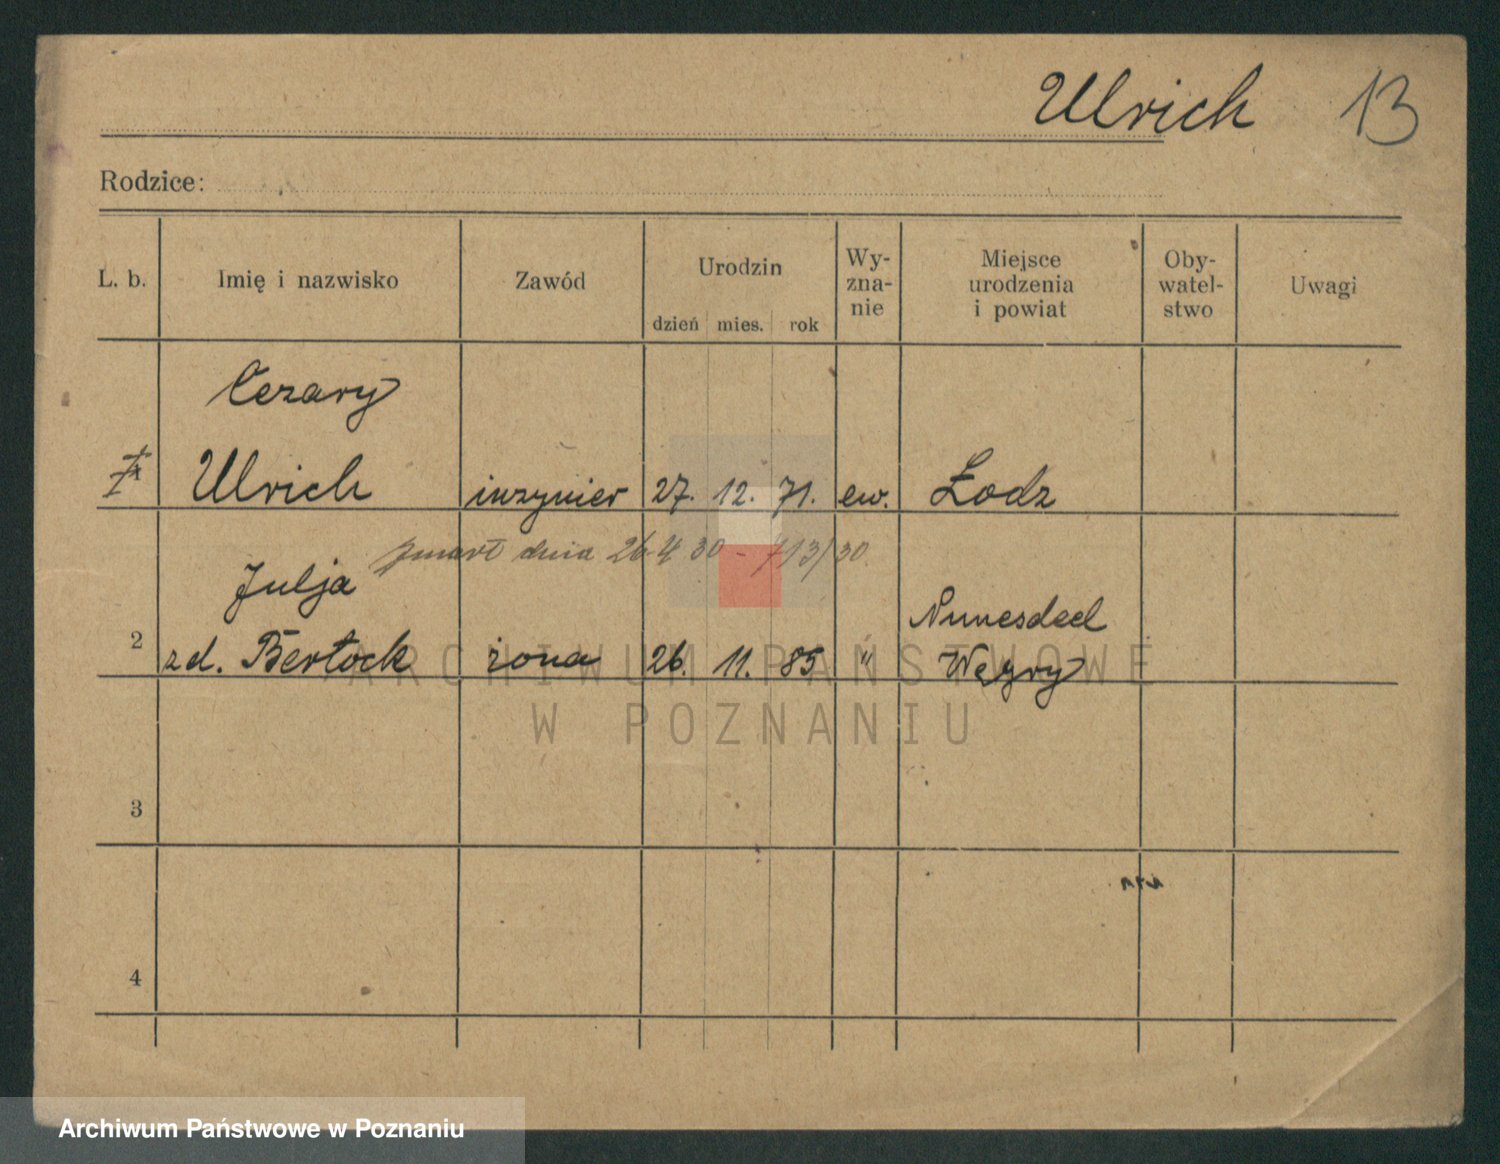 Ulrich 13
Rodzice:
L. b. Imię i nazwisko Zawód Urodzin Wy-zna-nie Miejsce urodzenia i powiat Oby-watel-stwo Uwagi
dzień mies. rok
Cezary
1 Ulrich inzynier 27. 12. 71. ew. Łodz
zmarł dnia 26 4 30 - 713/30
Julja
2 zd. Bertock żona 26. 11. 85 "
Węgry
3
4
ARCHIWUM PAŃSTWOWE
W POZNANIU
Archiwum Państwowe w Poznaniu